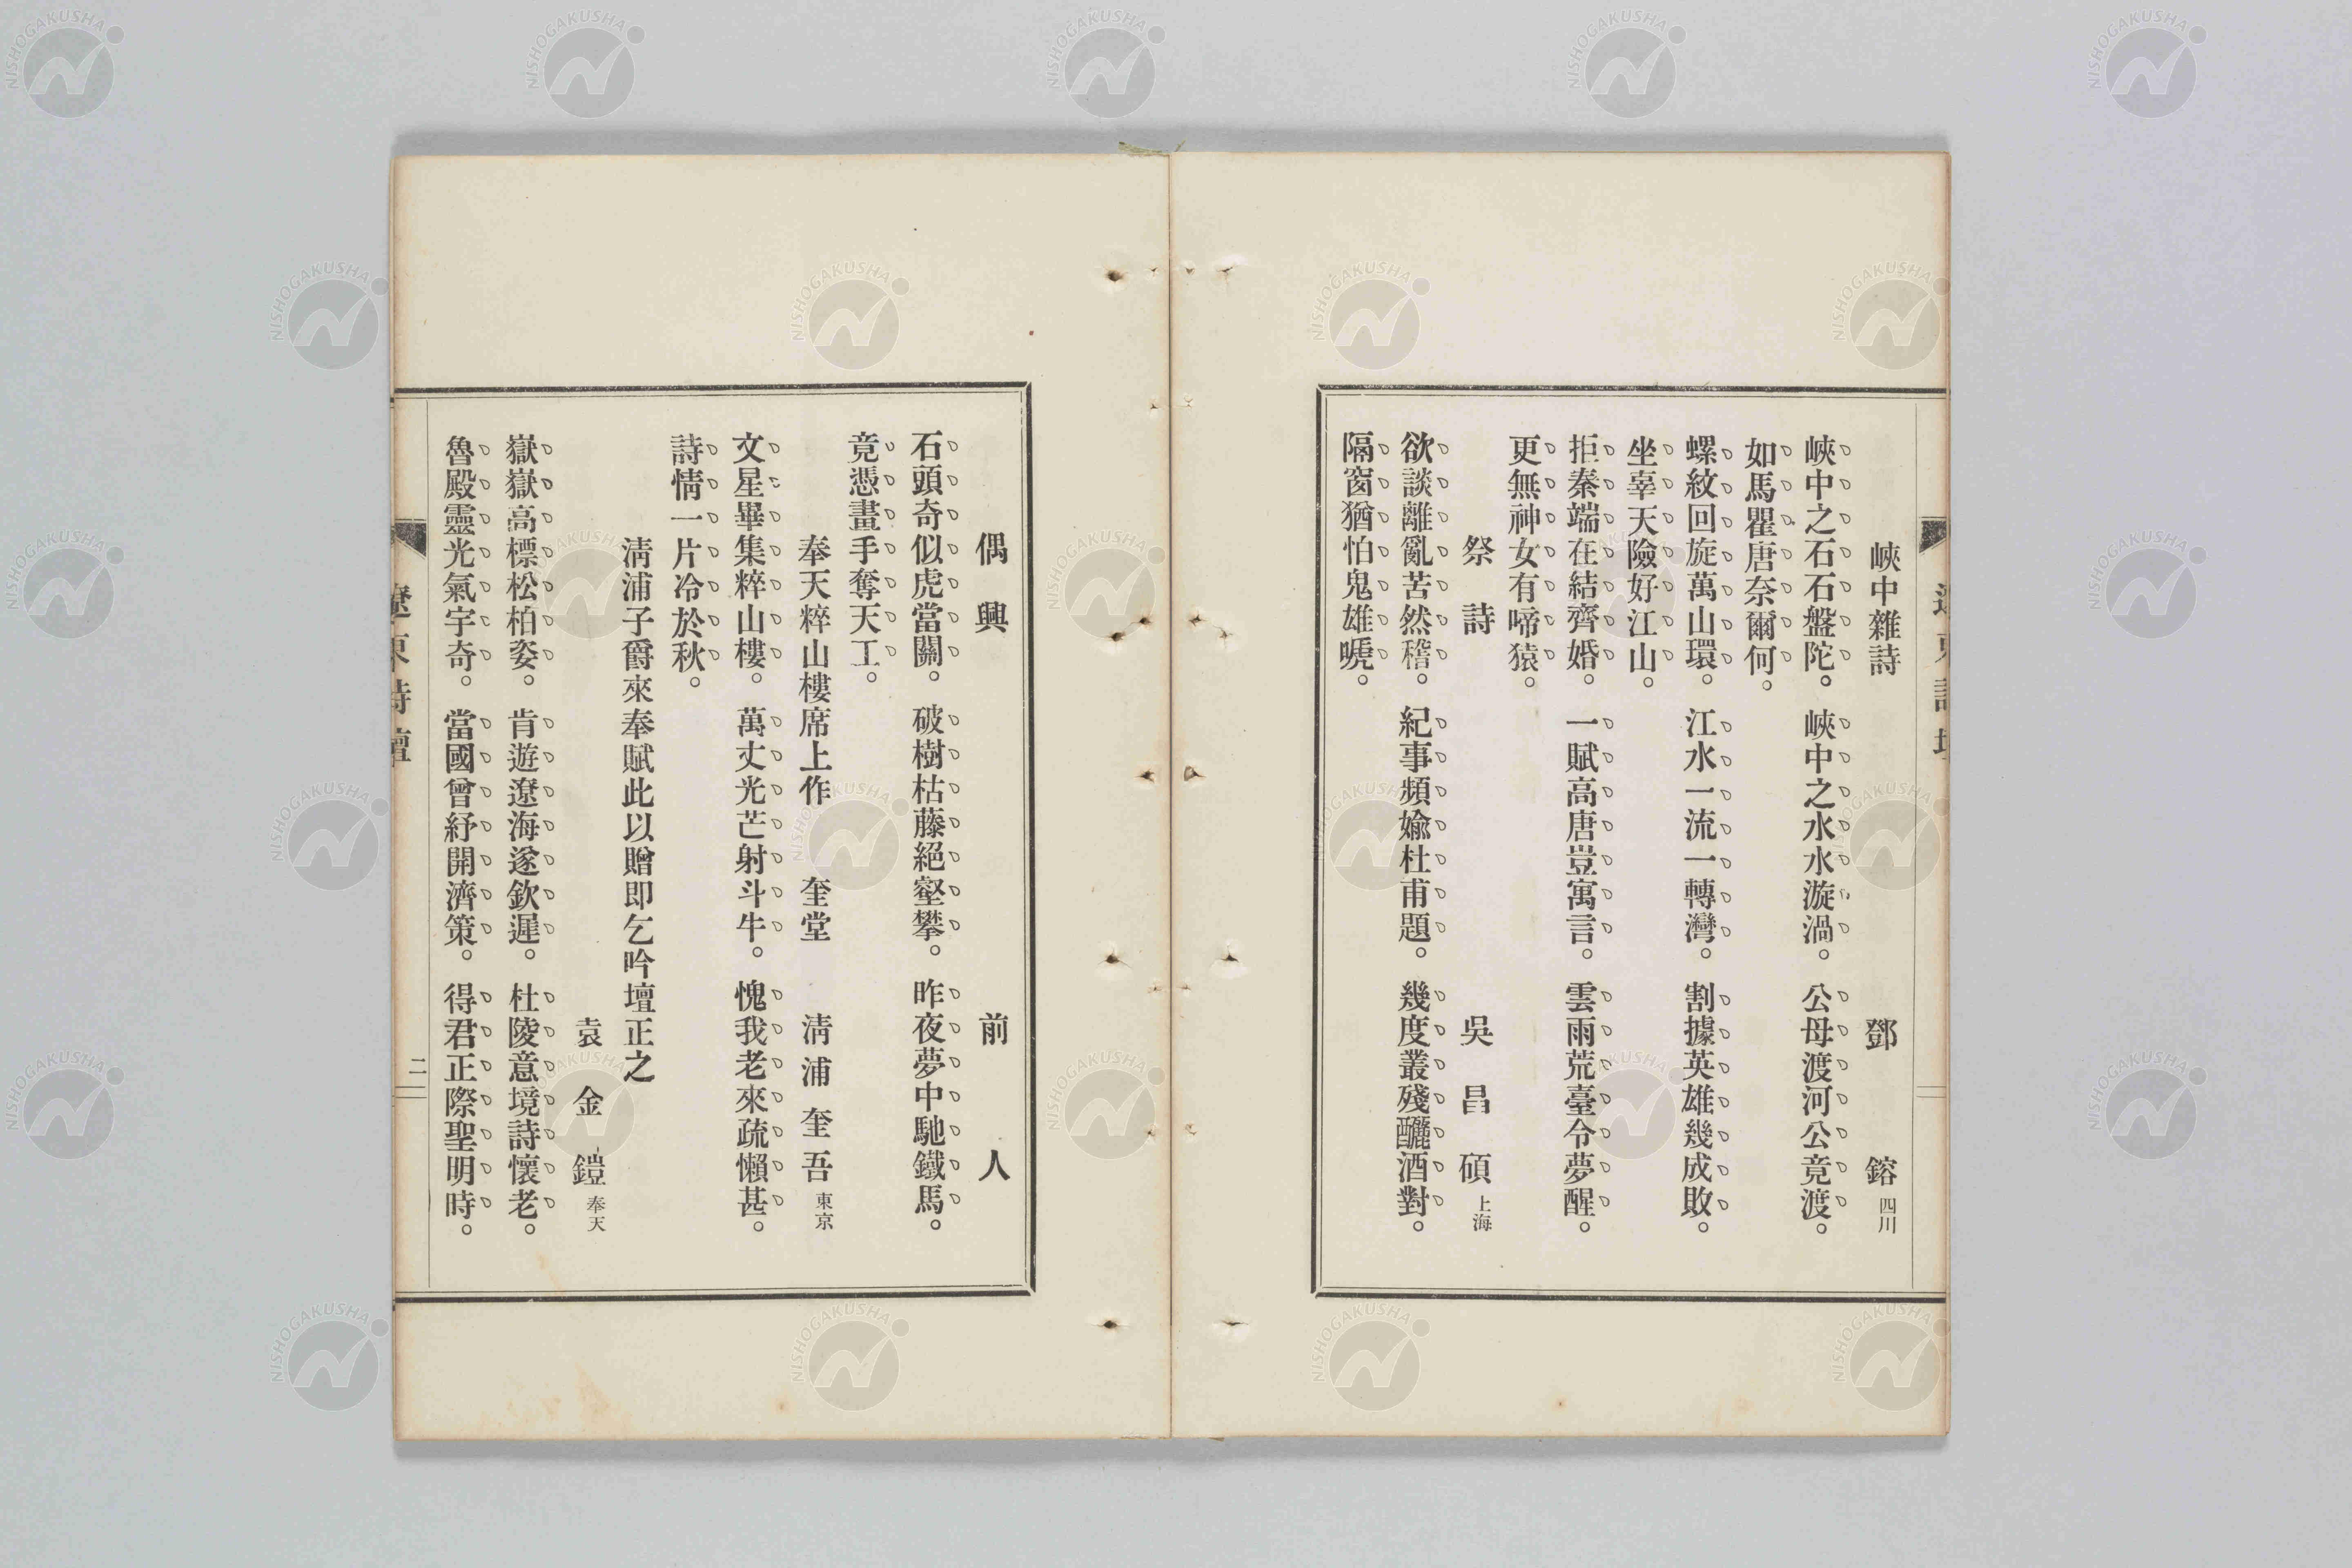 峽中雜詩 鄧鎔 四川
峽中之石石盤陀。峽中之水水漩渦。公母渡河公竟渡。
如馬瞿唐奈爾何。
螺紋回旋萬山環。江水一流一轉灣。割據英雄幾成敗。
坐辜天險好江山。
拒秦端在結齊婚。一賦高唐豈寓言。雲雨荒臺令夢醒。
更無神女有啼猿。
祭詩 吳昌碩 上海
欲談離亂苦然稽。紀事頻婾杜甫題。幾度叢殘釃酒對。
隔窗猶怕鬼雄嗁。
偶興 前人
石頭奇似虎當關。破樹枯藤絕壑攀。昨夜夢中馳鐵馬。
竟憑畫手奪天工。
奉天粹山樓席上作 奎堂 淸浦奎吾 東京
文星畢集粹山樓。萬丈光芒射斗牛。愧我老來疏懶甚。
詩情一片冷於秋。
淸浦子爵來奉賦此以贈即乞吟壇正之
袁金鎧 奉天
嶽嶽高標松柏姿。肯遊遼海遂欽遲。杜陵意境詩懷老。
魯殿靈光氣宇奇。當國曾紓開濟策。得君正際聖明時。
遼東詩壇
二
NISHOGAKUSHA